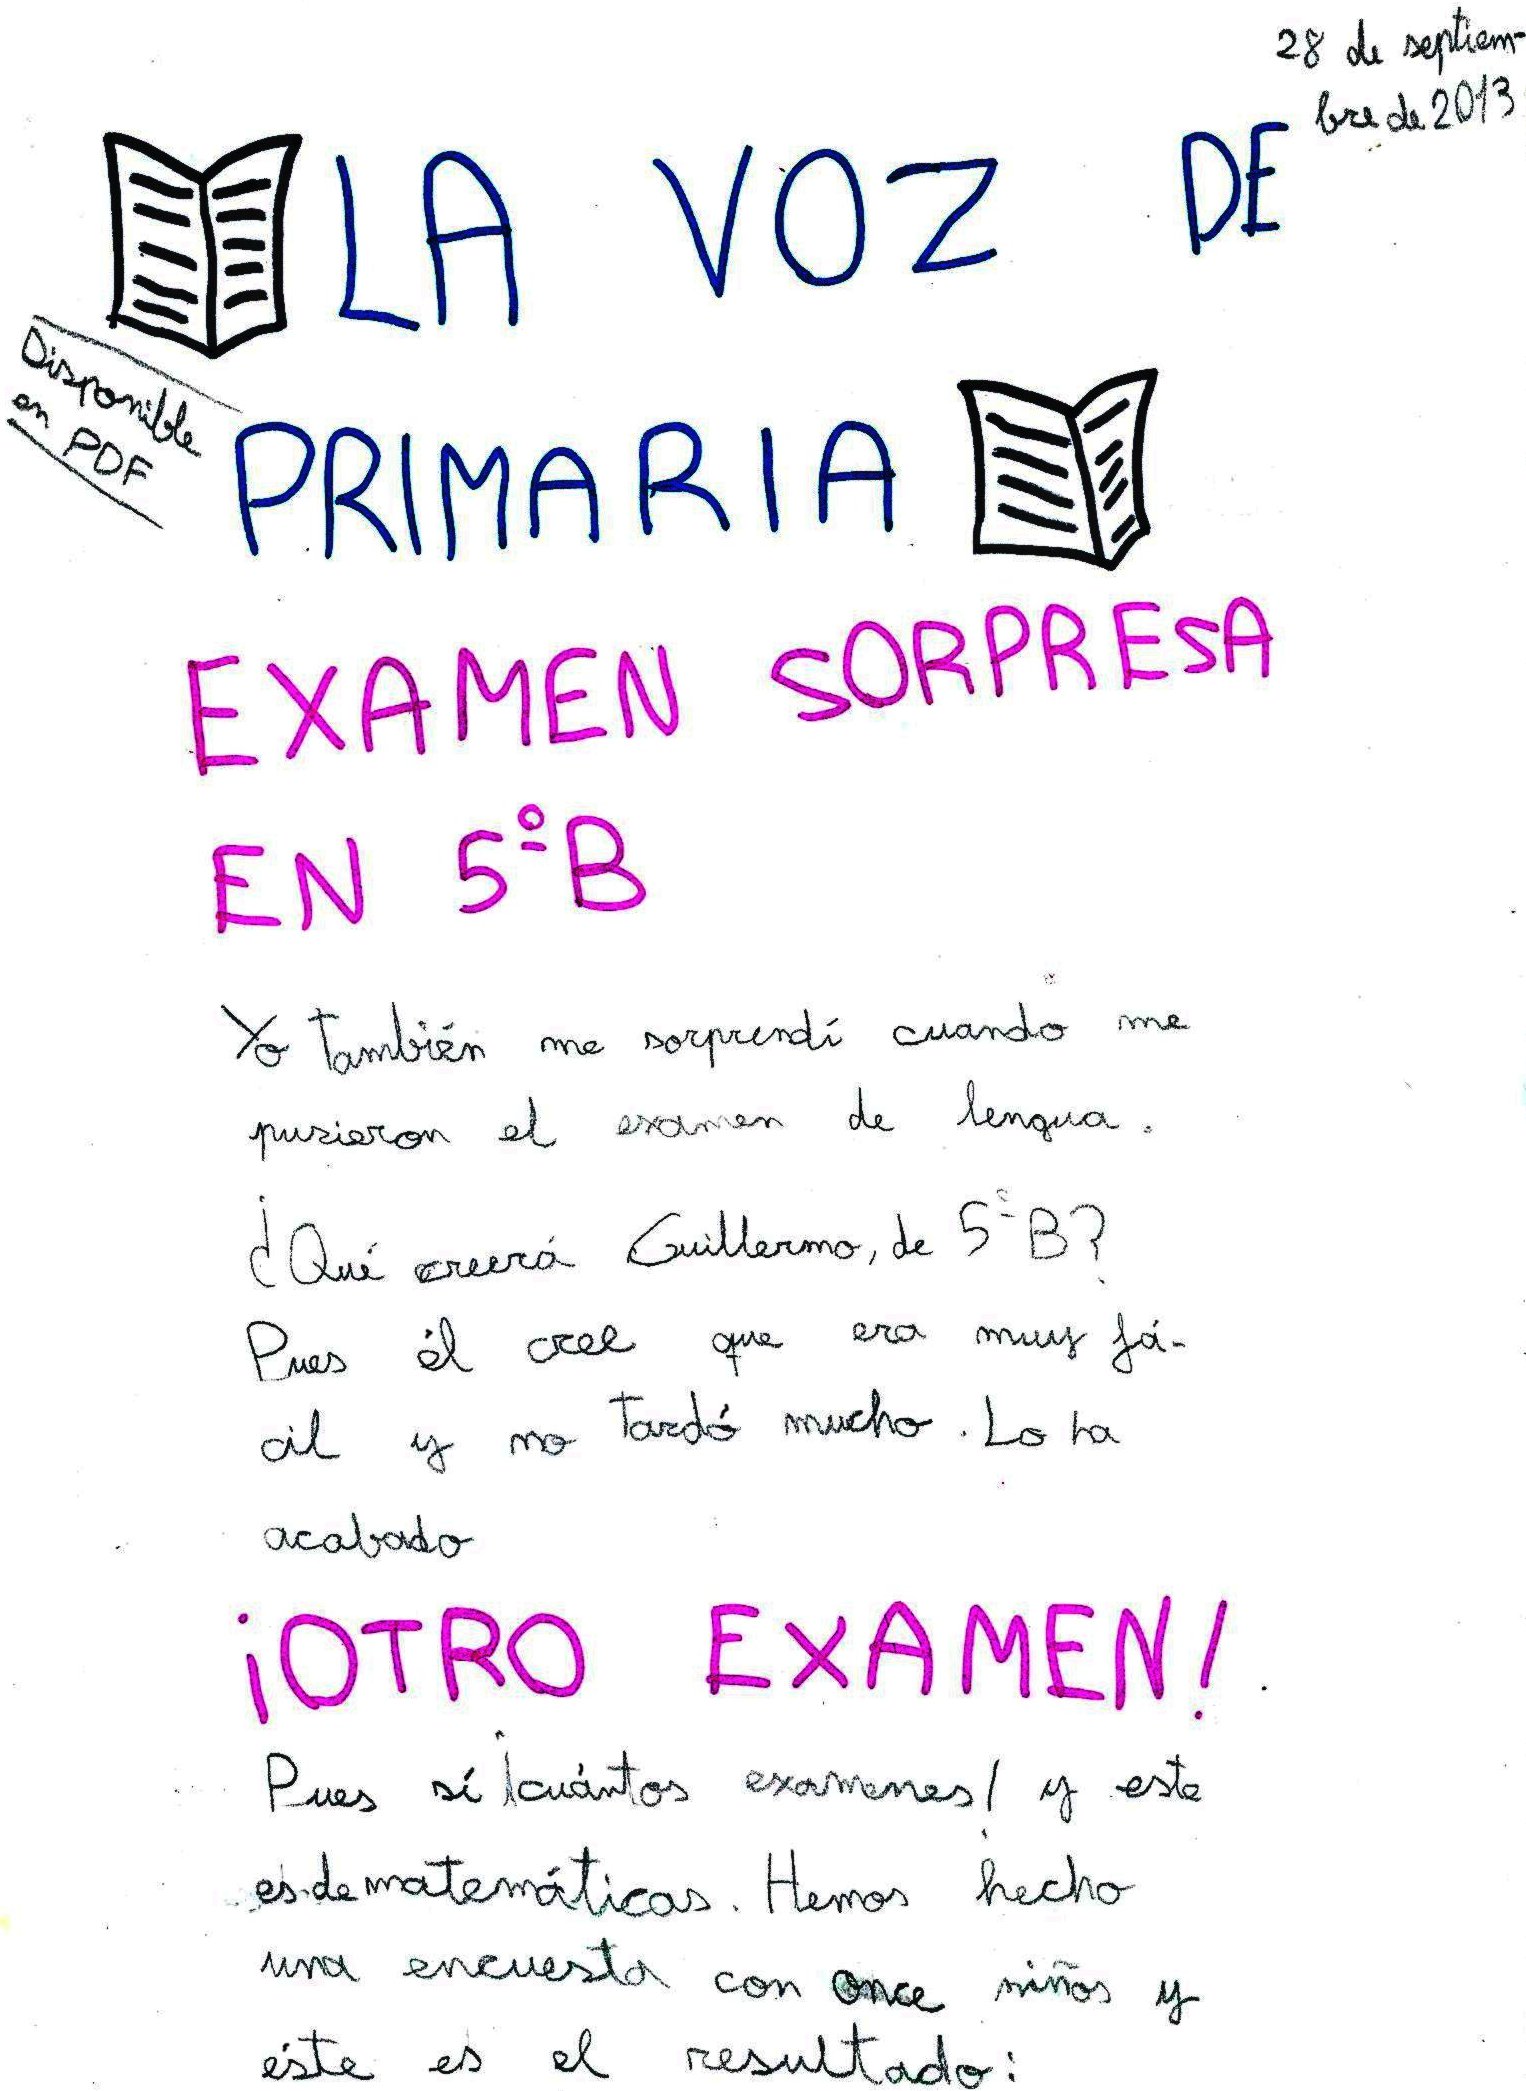 28 de septiem-
bre de 2013
LA VOZ DE
Disponible
en PDF
PRIMARIA
EXAMEN SORPRESA
EN 5º B
Yo también me sorprendí cuando me
pusieron el examen de lengua.
¿Qué creerá Guillermo, de 5º B?
Pues él cree que era muy fá-
cil y no tardó mucho. Lo ha
acabado
¡OTRO EXAMEN!
Pues sí ¡cuántos examenes! y este
es de matemáticas. Hemos hecho
una encuesta con once niños y
éste es el resultado: